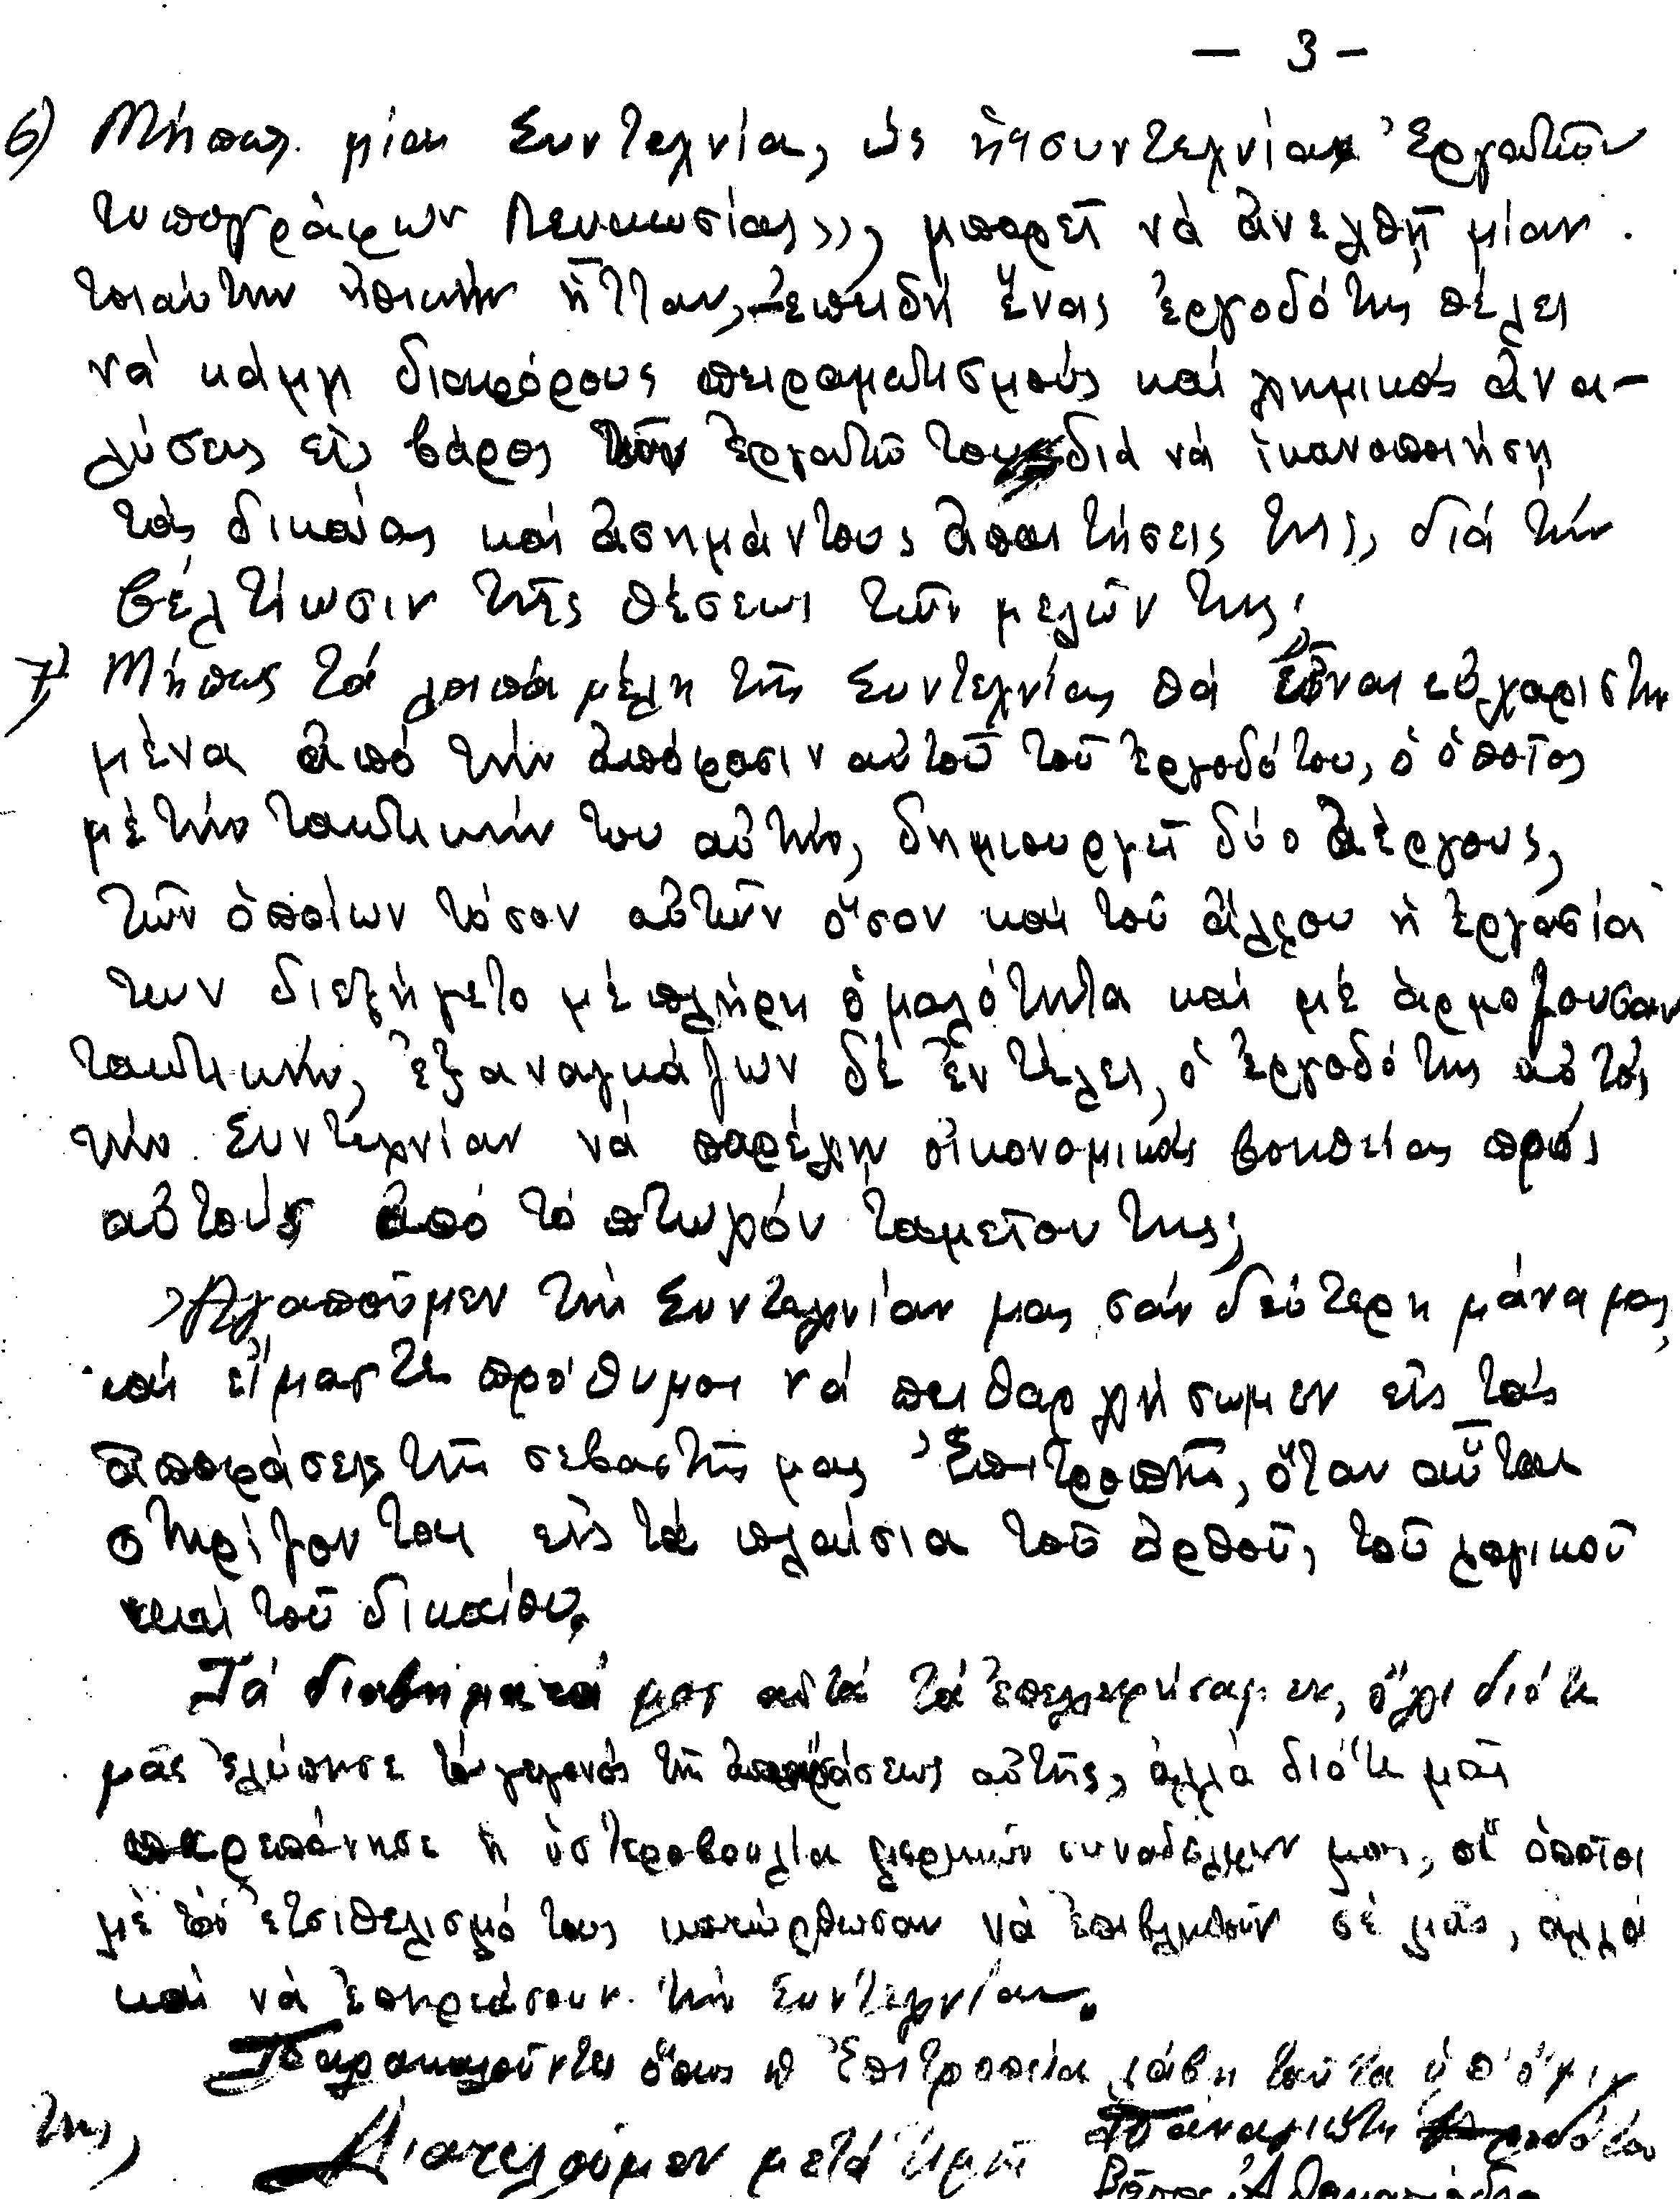 — 3 —
6) Μήπως μία Συντεχνία, ὡς ἡ «συντεχνία Ἐργατῶν
τυπογράφων Λευκωσίας», μπορεῖ νά ἀνεχθῇ μίαν
τοιαύτην ἠθικήν ἧτταν, ἐπειδή ἕνας ἐργοδότης θέλει
νά κάμῃ διαφόρους πειραματισμούς καί χημικάς ἀνα-
λύσεις εἰς βάρος τῶν ἐργατῶν του διά νά ἱκανοποιήσῃ
τάς δικαίας καί ἀσημάντους ἀπαιτήσεις της, διά τήν
βελτίωσιν τῆς θέσεως τῶν μελῶν της;
7) Μήπως τά λοιπά μέλη τῆς Συντεχνίας θά εἶναι εὐχαριστη
μένα ἀπό τήν ἀπόφασιν αὐτοῦ τοῦ ἐργοδότου, ὁ ὁποῖος
μέ τήν τακτικήν του αὐτήν, δημιουργεῖ δύο ἀέργους,
τῶν ὁποίων τόσον αὐτῶν ὅσον καί τοῦ ἄλλου ἡ ἐργασία
των διεξήγετο μέ πλήρη ὁμαλότητα καί μέ ἁρμόζουσαν
τακτικήν, ἐξαναγκάζων δέ ἐν τέλει, ὁ ἐργοδότης αὐτός
τήν Συντεχνίαν νά παρέχῃ οἰκονομικάς βοηθείας πρός
αὐτούς ἀπό τό πτωχόν ταμεῖον της;
Ἀγαποῦμεν τήν Συντεχνίαν μας σάν δεύτερη μάνα μας,
καί εἴμαστε πρόθυμοι νά πειθαρχήσωμεν εἰς τάς
ἀποφάσεις τῆς σεβαστῆς μας Ἐπιτροπῆς, ὅταν αὗται
στηρίζονται εἰς τά πλαίσια τοῦ ὀρθοῦ, τοῦ λογικοῦ
καί τοῦ δικαίου.
Τά διαβήματά μας αὐτά τά ἐπεχειρήσαμεν, ὄχι διότι
μᾶς ἐλύπησε τό γεγονός τῆς ἀποφάσεως αὐτῆς, ἀλλά διότι μᾶς
παρεπόνησε ἡ ὑστεροβουλία μερικῶν συναδέλφων μας, οἱ ὁποῖοι
μέ τόν ἐτσιθελισμό τους κατώρθωσαν νά ἐπιβληθοῦν σέ μᾶς, ἀλλά
καί νά ἐπηρεάσουν τήν Συντεχνίαν.
Παρακαλοῦντες ὅπως ἡ Ἐπιτροπεία λάβῃ ταῦτα ὑπ' ὄψιν
της,
Διατελοῦμεν μετά τιμῆς
Παναγιώτης